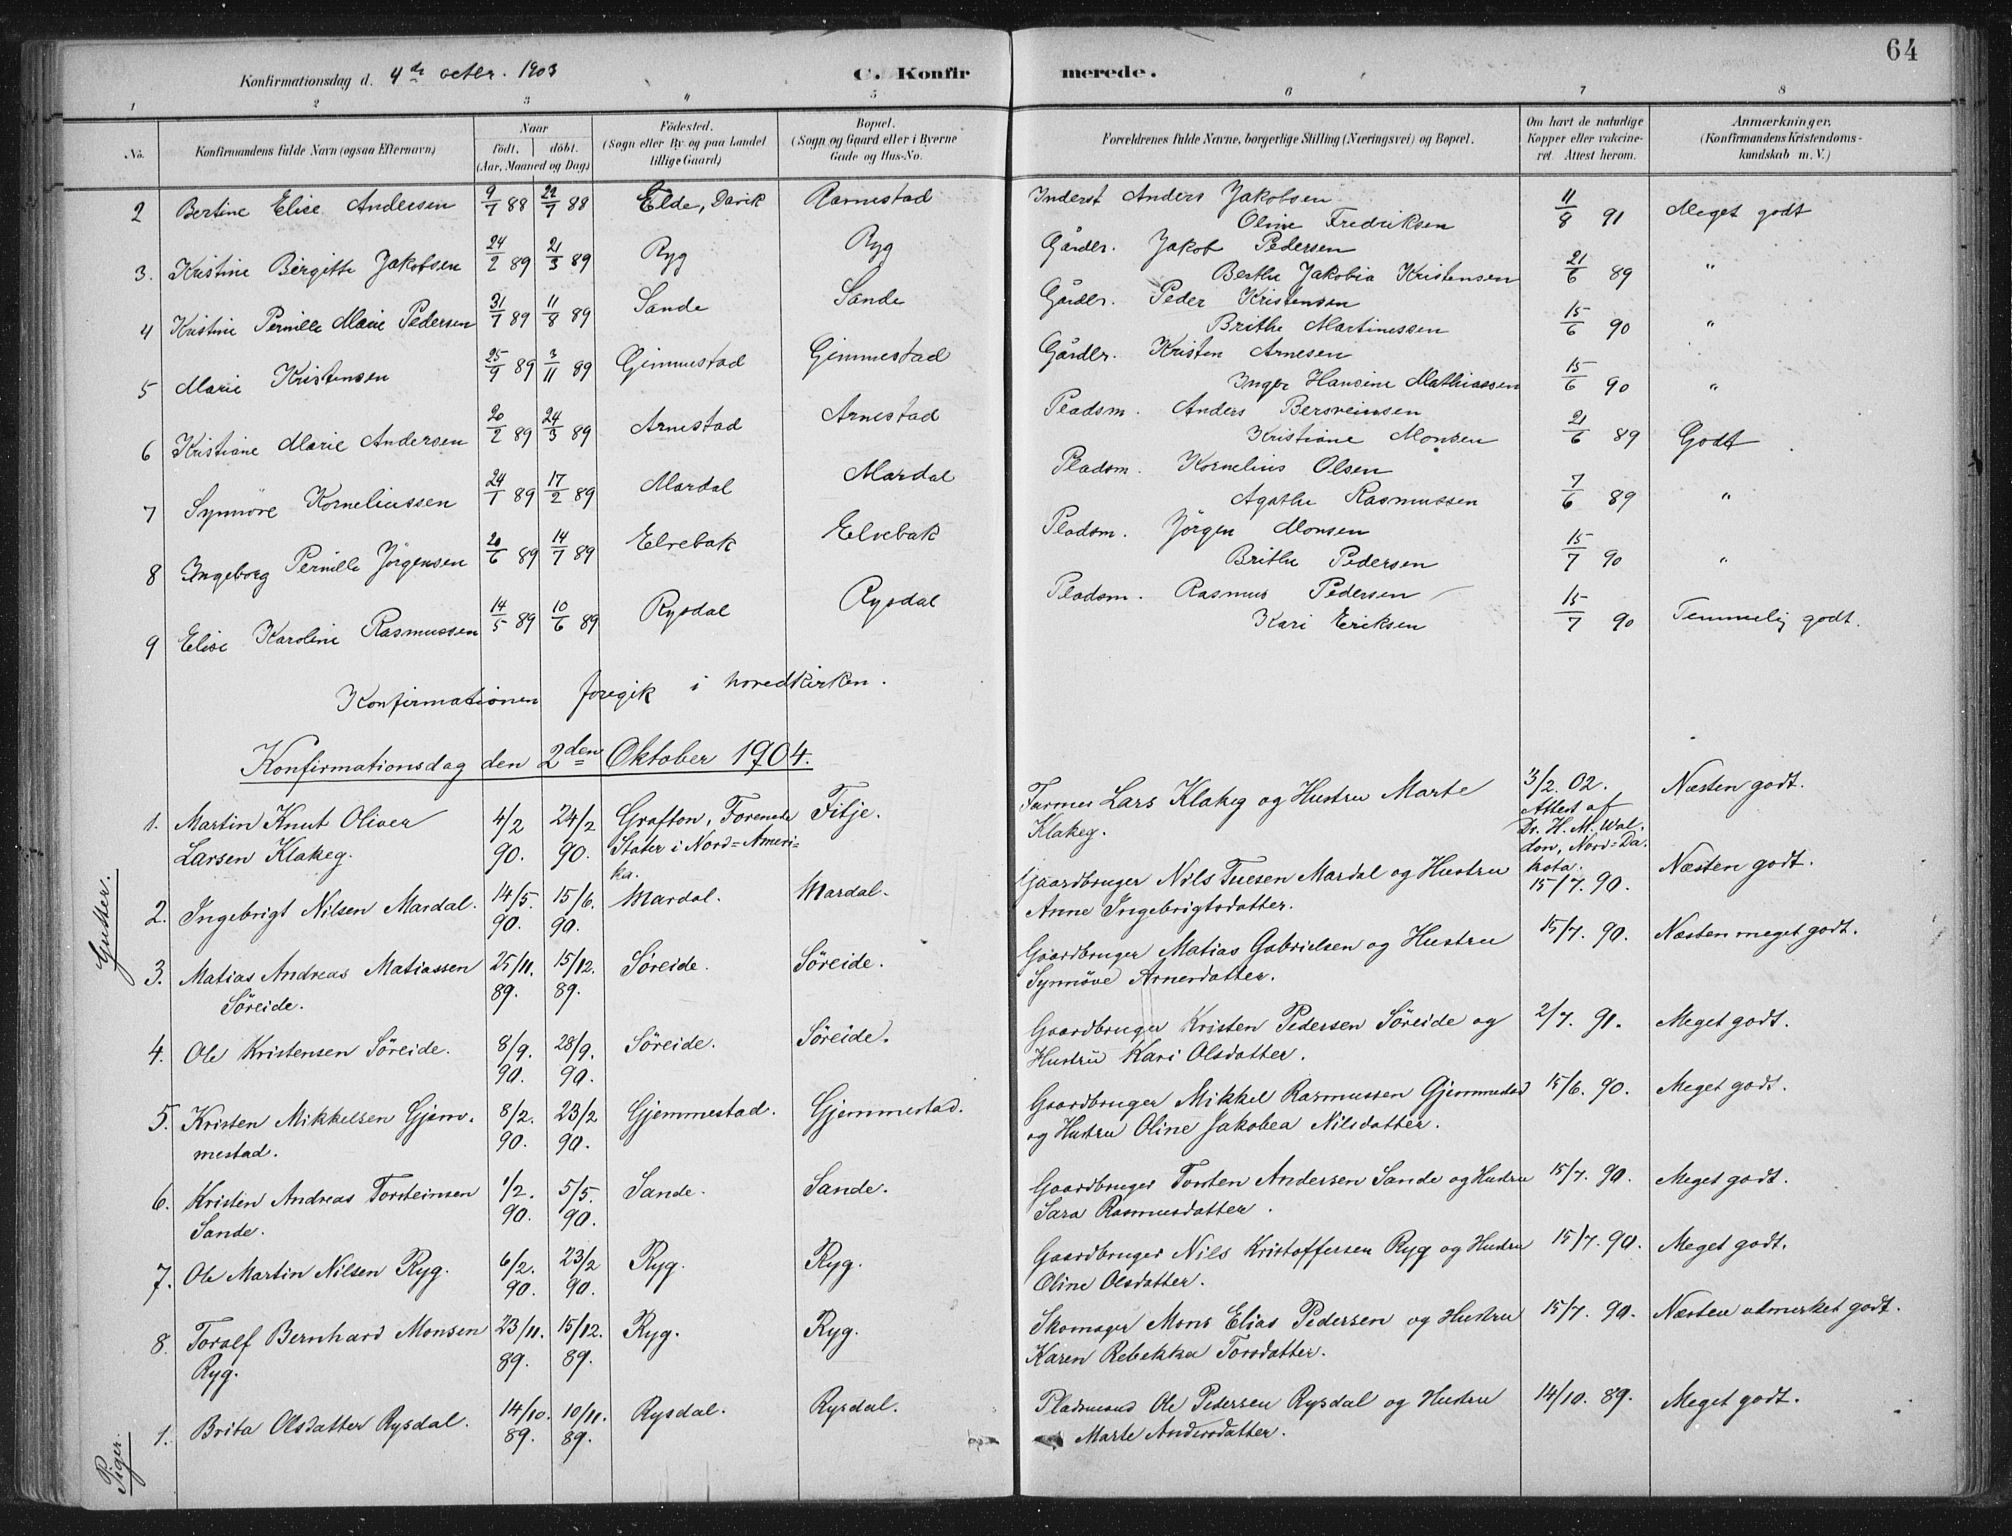 64
Konfirmationsdag d. 4de octbr. 1903 C. Konfirmerede.
1 2 3 4 5 6 7 8
No. Konfirmandens fulde Navn (ogsaa Efternavn) Naar født, døbt. (Aar, Maaned og Dag) Fødested. (Sogn eller By og paa Landet tillige Gaard) Bopæl. (Sogn og Gaard eller i Byerne Gade og Hus-No.) Forældrenes fulde Navne, borgerlige Stilling (Næringsvei) og Bopæl. Om havt de naturlige Kopper eller vakcineret. Attest herom. Anmærkninger. (Konfirmandens Kristendomskundskab m. V.)
2 Bertine Elise Andersen 9/7 88 22/7 88 Elde, Davik Arnestad Inderst Anders Jakobsen 11/8 91 Meget godt
Oline Fredriksen
3. Kristine Birgitte Jakobsen 24/2 89 21/3 89 Ryg Ryg Gårdbr. Jakob Pedersen 21/6 89 "
Berthe Jakobia Kristensen
4 Kristine Pernille Marie Pedersen 31/7 89 11/8 89 Sande Sande Gårdbr. Peder Kristensen 15/6 90 "
Brithe Martinussen
5 Marie Kristensen 25/9 89 3/11 89 Gimmestad Gimmestad Gårdbr. Kristen Arnesen 15/6 90 "
Inger Hansine Mathiassen
6 Kristiane Marie Andersen 20/2 89 24/3 89 Arnestad Arnestad Pladsm. Anders Bersveinsen 21/6 89 Godt
Kristiane Monsen
7 Synnöve Korneliussen 24/1 89 17/2 89 Mardal Mardal Pladsm. Kornelius Olsen 7/6 89 "
Agathe Rasmussen
8 Ingeborg Pernille Jörgensen 20/6 89 14/7 89 Elvebak Elvebak Pladsm. Jörgen Monsen 15/7 90 "
Brithe Pedersen
9 Elise Karoline Rasmussen 14/5 89 10/6 89 Rysdal Rysdal Pladsm. Rasmus Pedersen 15/7 90 Temmelig godt.
Kari Eriksen
Konfirmationen foregik i hovedkirken.
Konfirmationsdag den 2den Oktober 1904.
Gutter.
1. Martin Knut Oliver 4/2 24/2 Grafton, Forenede Fitje. Farmer Lars Klakeg og Hustru Marte 3/2. 02. Næsten godt.
Larsen Klakeg. 90. 90. Stater i Nord=Ameri= Klakeg. Attest af
ka. Dr. H. M. Wal.
don, Nord=Da.
kota.
2. Ingebrigt Nilsen Mardal. 14/5. 15/6. Mardal. Mardal. Gaardbruger Nils Tuesen Mardal og Hustru 15/7. 90. Næsten godt.
90. 90. Anne Ingebrigtsdatter.
3. Matias Andreas Matiassen 25/11. 15/12. Söreide. Söreide. Gaardbruger Matias Gabrielsen og Hustru 15/7. 90. Næsten meget godt.
Söreide. 89. 89. Synnöve Arnesdatter.
4. Ole Kristensen Söreide. 8/9. 28/9. Söreide. Söreide. Gaardbruger Kristen Pedersen Söreide og 2/7. 91. Meget godt.
90. 90. Hustru Kari Olsdatter.
5. Kristen Mikkelsen Gjem. 8/2. 23/2 Gjemmestad. Gjemmestad. Gaardbruger Mikkel Rasmussen Gjemmestad 15/6. 90. Meget godt.
mestad. 90. 90. og Hustru Oline Jakobea Nilsdatter.
6. Kristen Andreas Torsteinsen 1/2. 5/5. Sande. Sande. Gaardbruger Torsten Andersen Sande og Hustru 15/7. 90. Meget godt.
Sande. 90. 90. Sara Rasmusdatter.
7. Ole Martin Nilsen Ryg. 6/2. 23/2 Ryg. Ryg. Gaardbruger Nils Kristoffersen Ryg og Hustru 15/7. 90. Meget godt.
90. 90. Oline Olsdatter.
8. Toralf Bernhard Monsen 23/11. 15/12. Ryg. Ryg. Skomager Mons Elias Pedersen og Hustru 15/7. 90. Næsten udmerket godt.
Ryg. 89. 89. Karen Rebekka Torsdatter.
Piger.
1. Brita Olsdatter Rysdal. 14/10. 10/11. Rysdal. Rysdal. Pladsmand Ole Pedersen Rysdal og Hustru 14/10. 89. Meget godt.
89. 89. Marte Andersdatter.